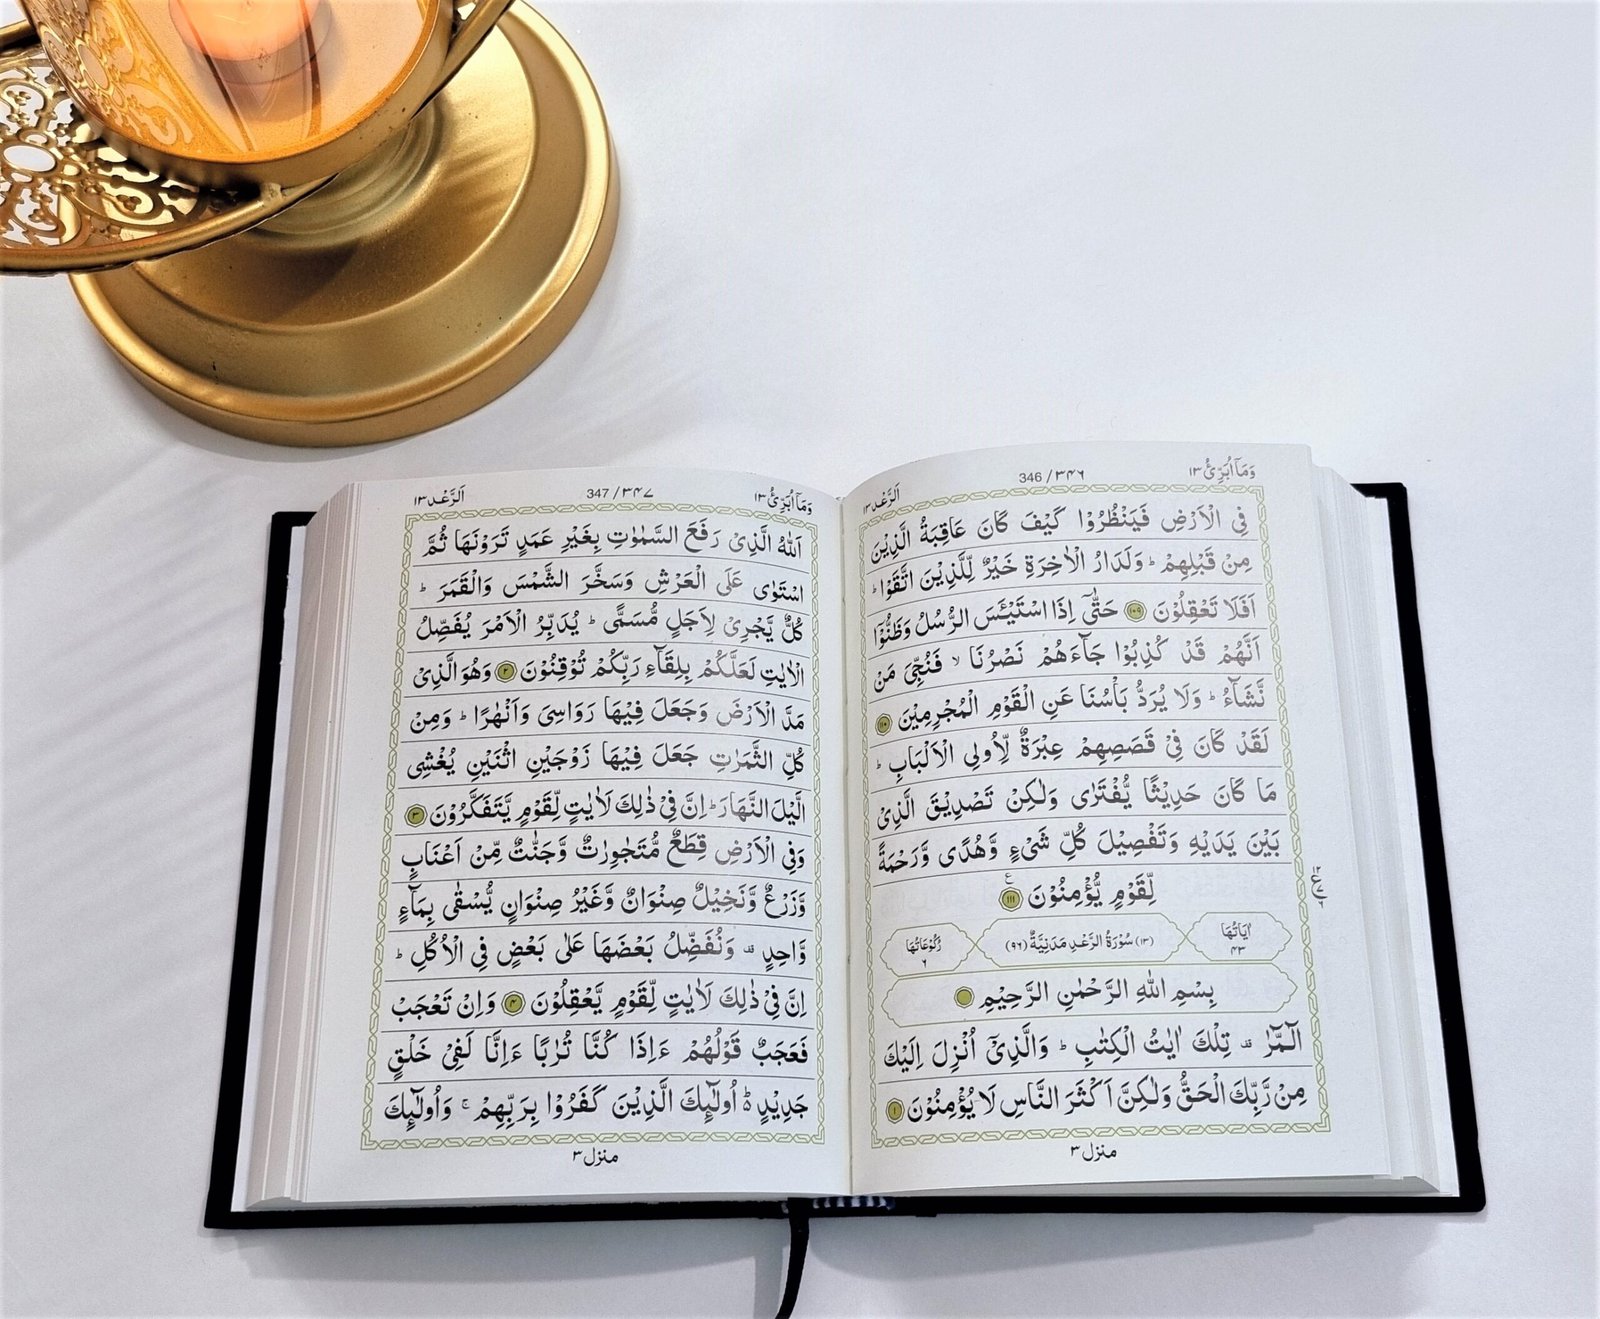 وَمَآ اُبَرِّئُ ١٣
346 / ٣۴٦
اَلرَّعْد ١٣
فِی الْاَرْضِ فَیَنْظُرُوْا كَیْفَ كَانَ عَاقِبَةُ الَّذِیْنَ
مِنْ قَبْلِهِمْ ؕ وَلَدَارُ الْاٰخِرَةِ خَیْرٌ لِّلَّذِیْنَ اتَّقَوْا ؕ
اَفَلَا تَعْقِلُوْنَ ﴿۱۰۹﴾ حَتّٰۤی اِذَا اسْتَیْـَٔسَ الرُّسُلُ وَظَنُّوْۤا
اَنَّهُمْ قَدْ كُذِبُوْا جَآءَهُمْ نَصْرُنَا ۙ فَنُجِّیَ مَنْ
نَّشَآءُ ؕ وَلَا یُرَدُّ بَاْسُنَا عَنِ الْقَوْمِ الْمُجْرِمِیْنَ ﴿۱۱۰﴾
لَقَدْ كَانَ فِیْ قَصَصِهِمْ عِبْرَةٌ لِّاُولِی الْاَلْبَابِ ؕ
مَا كَانَ حَدِیْثًا یُّفْتَرٰی وَلٰكِنْ تَصْدِیْقَ الَّذِیْ
بَیْنَ یَدَیْهِ وَتَفْصِیْلَ كُلِّ شَیْءٍ وَّهُدًی وَّرَحْمَةً
لِّقَوْمٍ یُّؤْمِنُوْنَ ﴿۱۱۱﴾ ع
اٰیَاتُهَا ۴۳
(۱۳) سُوْرَةُ الرَّعْدِ مَدَنِیَّةٌ (۹٦)
رُكُوْعَاتُهَا ٦
بِسْمِ اللّٰهِ الرَّحْمٰنِ الرَّحِیْمِ
الٓمّٓرٰ ۫ تِلْكَ اٰیٰتُ الْكِتٰبِ ؕ وَالَّذِیْۤ اُنْزِلَ اِلَیْكَ
مِنْ رَّبِّكَ الْحَقُّ وَلٰكِنَّ اَكْثَرَ النَّاسِ لَا یُؤْمِنُوْنَ ﴿۱﴾
منزل ٣
وَمَآ اُبَرِّئُ ١٣
347 / ٣۴۷
اَلرَّعْد ١٣
اَللّٰهُ الَّذِیْ رَفَعَ السَّمٰوٰتِ بِغَیْرِ عَمَدٍ تَرَوْنَهَا ثُمَّ
اسْتَوٰی عَلَی الْعَرْشِ وَسَخَّرَ الشَّمْسَ وَالْقَمَرَ ؕ
كُلٌّ یَّجْرِیْ لِاَجَلٍ مُّسَمًّی ؕ یُدَبِّرُ الْاَمْرَ یُفَصِّلُ
الْاٰیٰتِ لَعَلَّكُمْ بِلِقَآءِ رَبِّكُمْ تُوْقِنُوْنَ ﴿۲﴾ وَهُوَ الَّذِیْ
مَدَّ الْاَرْضَ وَجَعَلَ فِیْهَا رَوَاسِیَ وَاَنْهٰرًا ؕ وَمِنْ
كُلِّ الثَّمَرٰتِ جَعَلَ فِیْهَا زَوْجَیْنِ اثْنَیْنِ یُغْشِی
الَّیْلَ النَّهَارَ ؕ اِنَّ فِیْ ذٰلِكَ لَاٰیٰتٍ لِّقَوْمٍ یَّتَفَكَّرُوْنَ ﴿۳﴾
وَفِی الْاَرْضِ قِطَعٌ مُّتَجٰوِرٰتٌ وَّجَنّٰتٌ مِّنْ اَعْنَابٍ
وَّزَرْعٌ وَّنَخِیْلٌ صِنْوَانٌ وَّغَیْرُ صِنْوَانٍ یُّسْقٰی بِمَآءٍ
وَّاحِدٍ ۫ وَنُفَضِّلُ بَعْضَهَا عَلٰی بَعْضٍ فِی الْاُكُلِ ؕ
اِنَّ فِیْ ذٰلِكَ لَاٰیٰتٍ لِّقَوْمٍ یَّعْقِلُوْنَ ﴿۴﴾ وَاِنْ تَعْجَبْ
فَعَجَبٌ قَوْلُهُمْ ءَاِذَا كُنَّا تُرٰبًا ءَاِنَّا لَفِیْ خَلْقٍ
جَدِیْدٍ ؕ اُولٰٓئِكَ الَّذِیْنَ كَفَرُوْا بِرَبِّهِمْ ۚ وَاُولٰٓئِكَ
منزل ٣